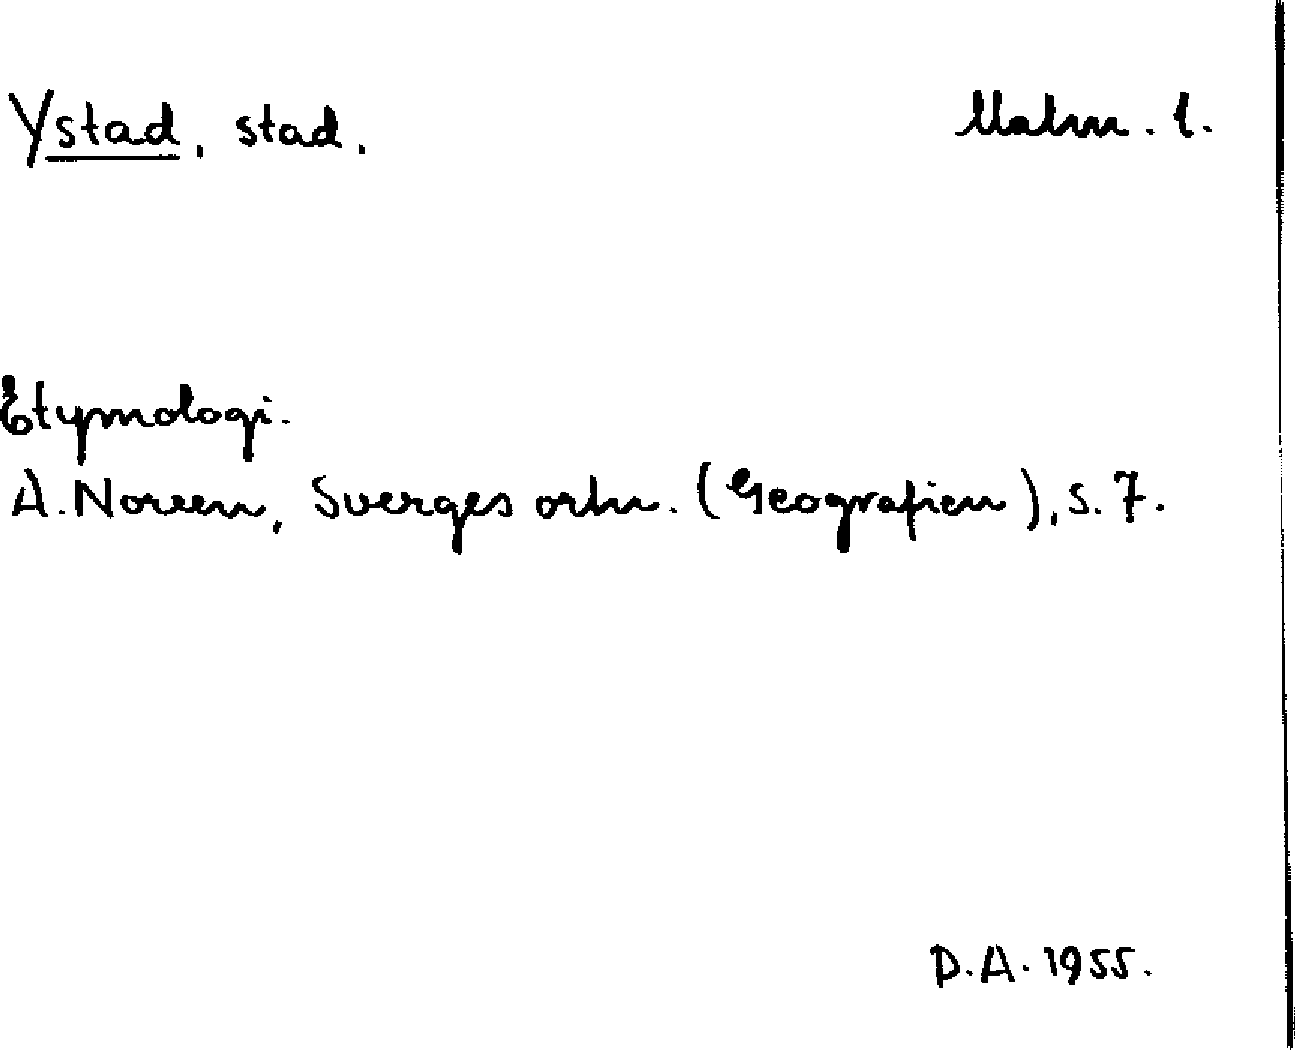 Ystad, stad. Malm. l.
Etymologi.
A. Noreen, Sverges ortn. (Geografien), s. 7.
D.A. 1955.